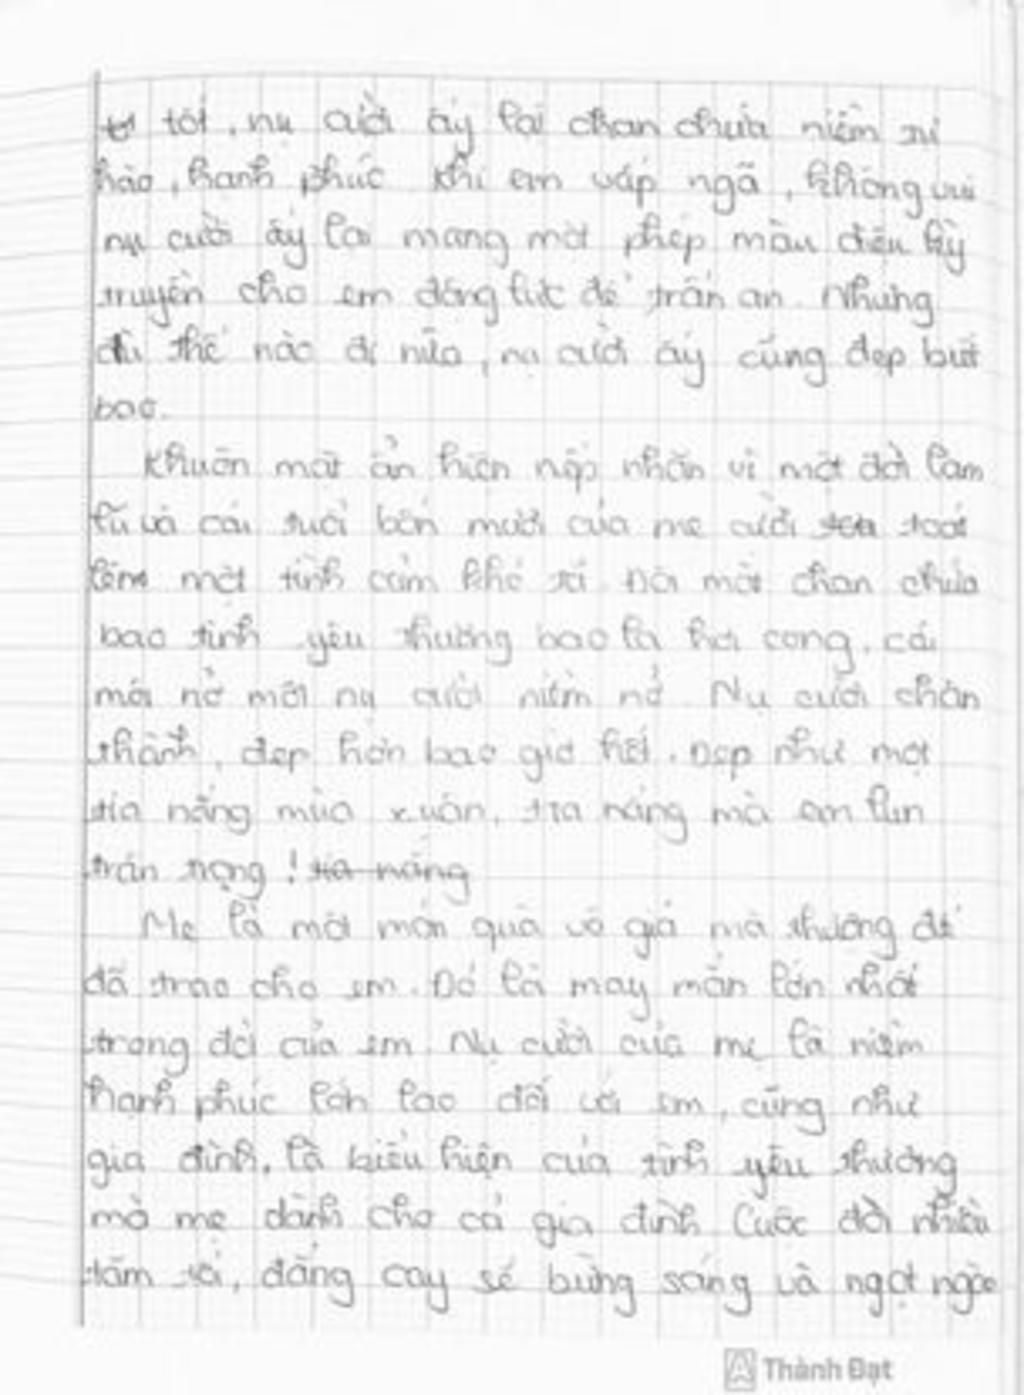 tốt, nụ cười ấy lại chan chứa niềm tự
hào, hạnh phúc khi em vấp ngã, không vui
nụ cười ấy lại mang một phép màu diệu kỳ
truyền cho em động lực để trấn an. Nhưng
dù thế nào đi nữa, nụ cười ấy cũng đẹp biết
bao.
Khuôn mặt ẩn hiện nếp nhăn vì một đời lam
lũ và cái tuổi bốn mươi của mẹ cười toát
lên một tình cảm khó tả. Đôi mắt chan chứa
bao tình yêu thương bao la hơi cong, cái
môi nở một nụ cười niềm nở. Nụ cười chân
thành, đẹp hơn bao giờ hết. Đẹp như một
tia nắng mùa xuân, tia nắng mà em luôn
trân trọng! tia nắng
Mẹ là một món quà vô giá mà thượng đế
đã trao cho em. Đó là may mắn lớn nhất
trong đời của em. Nụ cười của mẹ là niềm
hạnh phúc lớn lao đối với em, cũng như
gia đình, là biểu hiện của tình yêu thương
mà mẹ dành cho cả gia đình. Cuộc đời nhiều
tăm tối, đắng cay sẽ bừng sáng và ngọt ngào
Thành Đạt